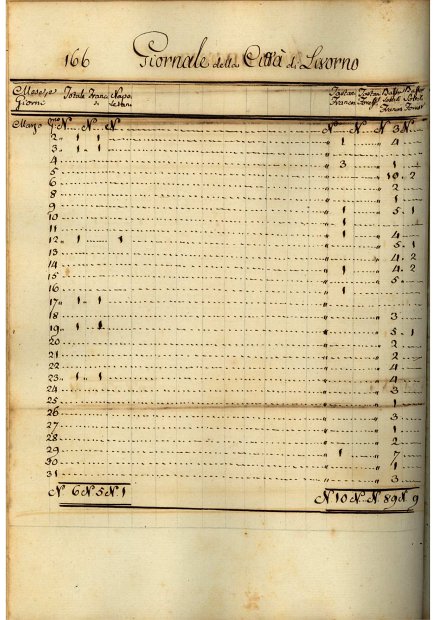 166 Giornale della Città di Livorno
Mese e Giorni Totale Francesi Napoletani Toscani Francesi Toscani
Marzo 1 N N N N N N 3 N
2 1 1 1 4
3 1 1
4 3 1
5 10 2
6 2
8 1
9 1 5 1
10 1
11 1 4
12 1 1 5 1
13 4 2
14 1 4 2
15 5
16 1
17 1 1
18 3
19 1 1 5 1
20 2
21 2
22 4
23 1 1 4
24 3
25 1
26 3
27 1
28 2
29 1 7
30 1
31 3
N 6 N 5 N 1 N 10 N N 89 N 9